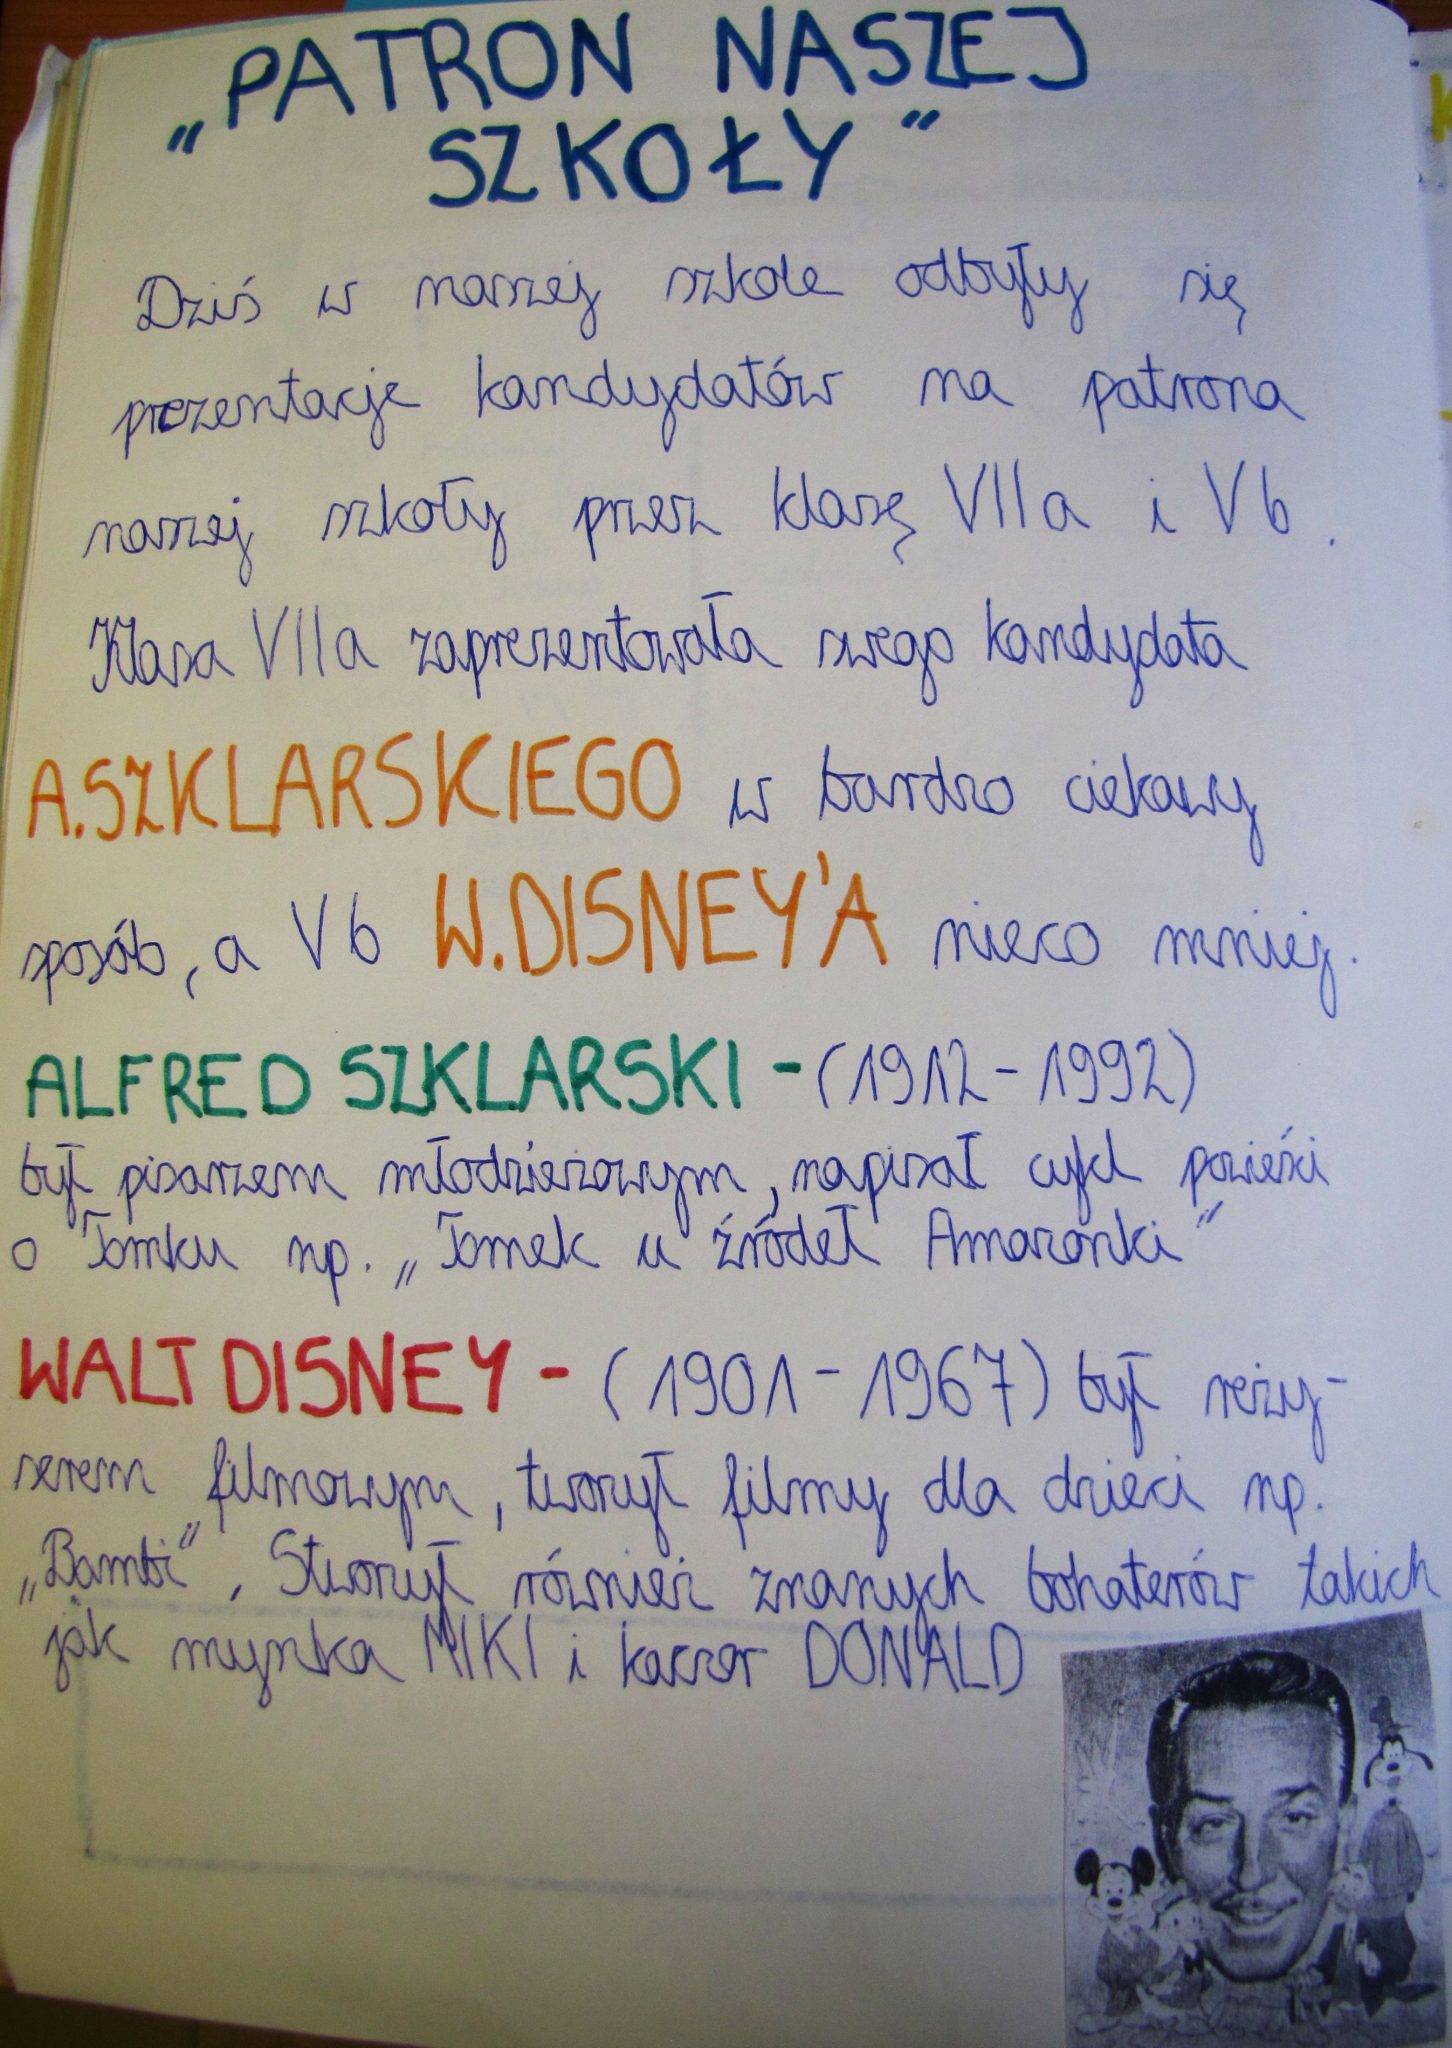 „PATRON NASZEJ
SZKOŁY"
Dziś w naszej szkole odbyły się
prezentacje kandydatów na patrona
naszej szkoły przez klasę VIIa i Vb.
Klasa VIIa zaprezentowała swego kandydata
A.SZKLARSKIEGO w bardzo ciekawy
sposób, a Vb W.DISNEY'A nieco mniej.
ALFRED SZKLARSKI - (1912-1992)
był pisarzem młodzieżowym, napisał cykl powieści
o Tomku np. „Tomek u źródeł Amazonki"
WALT DISNEY - (1901-1967) był reży-
serem filmowym, tworzył filmy dla dzieci np.
„Bambi". Stworzył również znanych bohaterów takich
jak myszka MIKI i kaczor DONALD